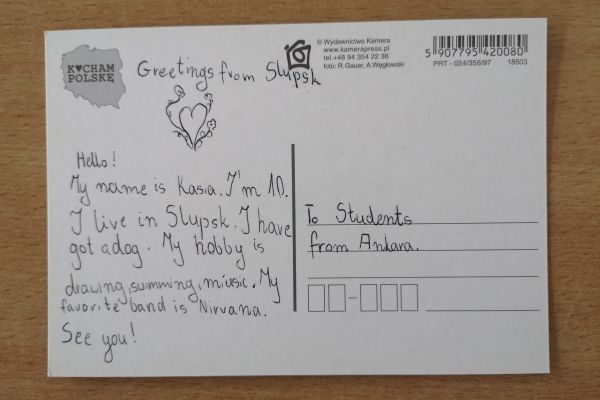 K♥CHAM
POLSKĘ
Greetings from Slupsk
© Wydawnictwo Kamera
www.kamerapress.pl
tel.+48 94 354 22 36
foto: R.Gauer, A.Węgłowski
5 907795 420080
PRT - 024/356/97 18503
Hello!
My name is Kasia. I'm 10.
I live in Slupsk. I have
got a dog. My hobby is
drawing, swimming, miusic. My
favorite band is Nirvana.
See you!
To Students
from Ankara.